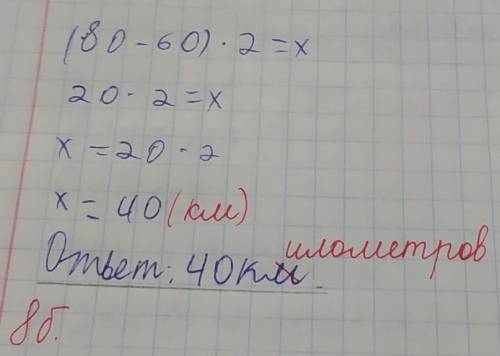 (80-60)·2=x
20·2=x
x=20·2
x=40(км)
Ответ: 40км илометров
8б.